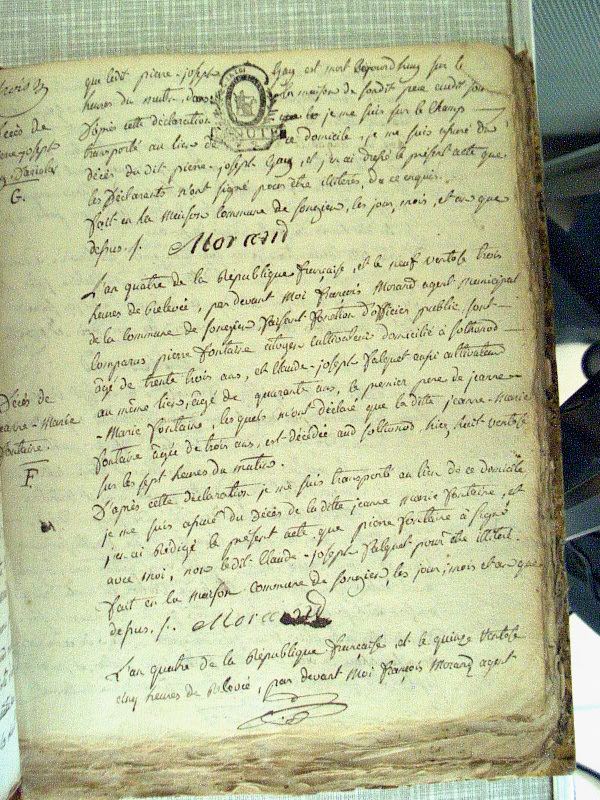 que ledit pierre-joseph Gay est mort aujourd'huy sur le
heures du matin, dans la maison de sondit pere audit son
D'après cette déclaration je me suis sur le champ
transporté au lieu de ce domicile, je me suis assuré du
décès du dit pierre-joseph Gay, et j'en ai dressé le présent acte que
les déclarants n'ont signé pour être illiterés, de ce enquis.
fait en la maison commune de songieu, les jour, mois, et an que
depus. /. Morand
Décès de
G.
L'an quatre de la République française, et le neuf ventose trois
heures de relevée, par devant moi françois Morand agent municipal
de la commune de songieu faisant fonction d'officier public, sont
comparus pierre fontaine citoyen cultivateur domicilié à sothonod
âgé de trente trois ans, et Claude-joseph falquet aussi cultivateur
au même lieu, âgé de quarante ans, le premier pere de jeanne-
-Marie fontaine, les quels m'ont déclaré que la ditte jeanne-Marie
fontaine âgée de trois ans, est décédée aud sothonod, hier, huit ventose
sur les sept heures du matin.
Décès de
jeanne-Marie
fontaine.
F.
D'après cette déclaration je me suis transporté au lieu de ce domicile
je me suis assuré du décès de la ditte jeanne Marie fontaine, et
j'en ai rédigé le présent acte que pierre fontaine a signé
avec moi, non ledit Claude-joseph falquet pour être illiteré.
fait en la maison commune de songieu, les jour, mois et an que
depus. /. Morand
L'an quatre de la République française, et le quinze ventose
cinq heures de relevée, par devant moi françois Morand agent